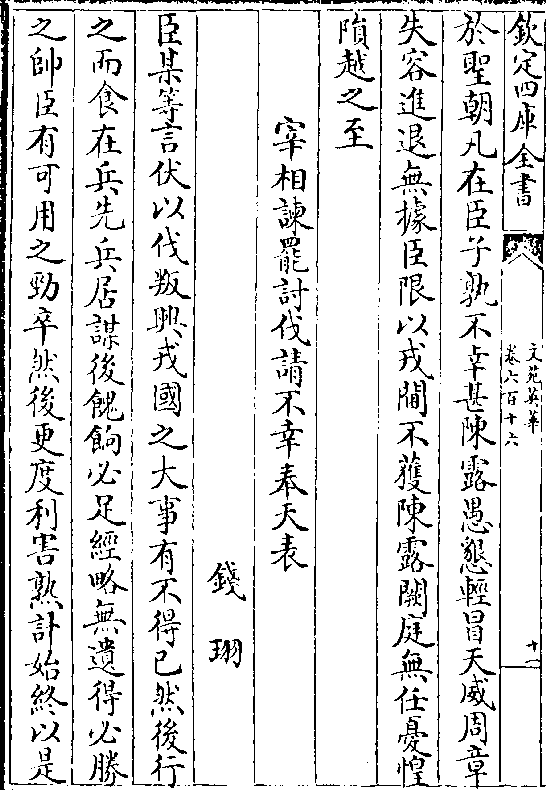 欽定四庫全書
文苑英華
卷六百十六
十一
於聖朝凡在臣子孰不幸甚陳露愚懇輕冒天威周章
失容進退無據臣限以戎閫不獲陳露闕庭無任憂惶
隕越之至
宰相諫罷討伐請不幸奉天表
錢珝
臣某等言伏以伐叛興戎國之大事有不得已然後行
之而食在兵先兵居謀後餽餉必足經略無遺得必勝
之帥臣有可用之勁卒然後更度利害熟計始終以是